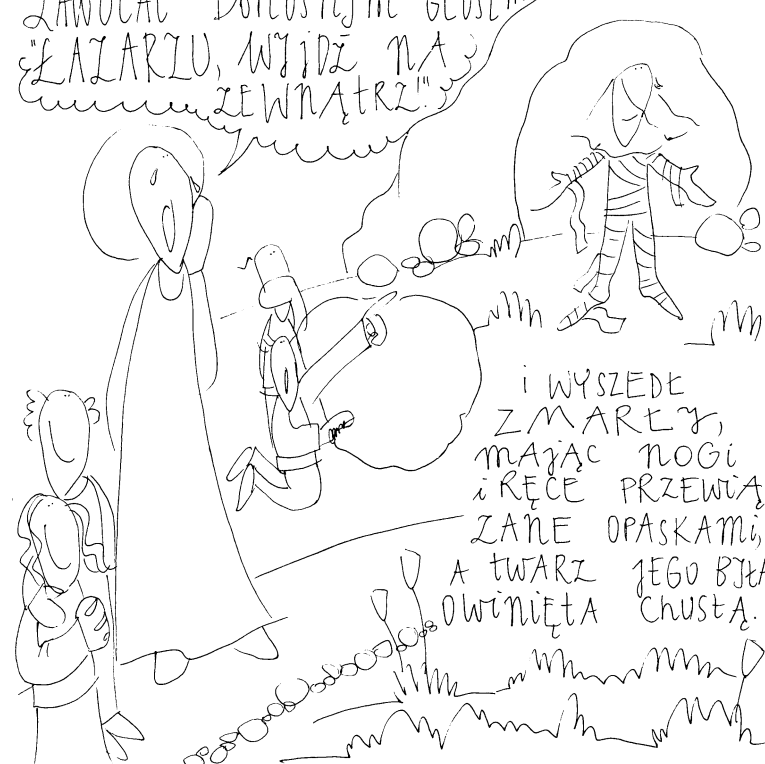 ZAWOŁAŁ DONOŚNYM GŁOSEM
"ŁAZARZU, WYJDŹ NA
ZEWNĄTRZ!"
i WYSZEDŁ
ZMARŁY,
MAJĄC NOGI
i RĘCE PRZEWIĄ
ZANE OPASKAMI,
A TWARZ JEGO BYŁA
OWINIĘTA CHUSTĄ.